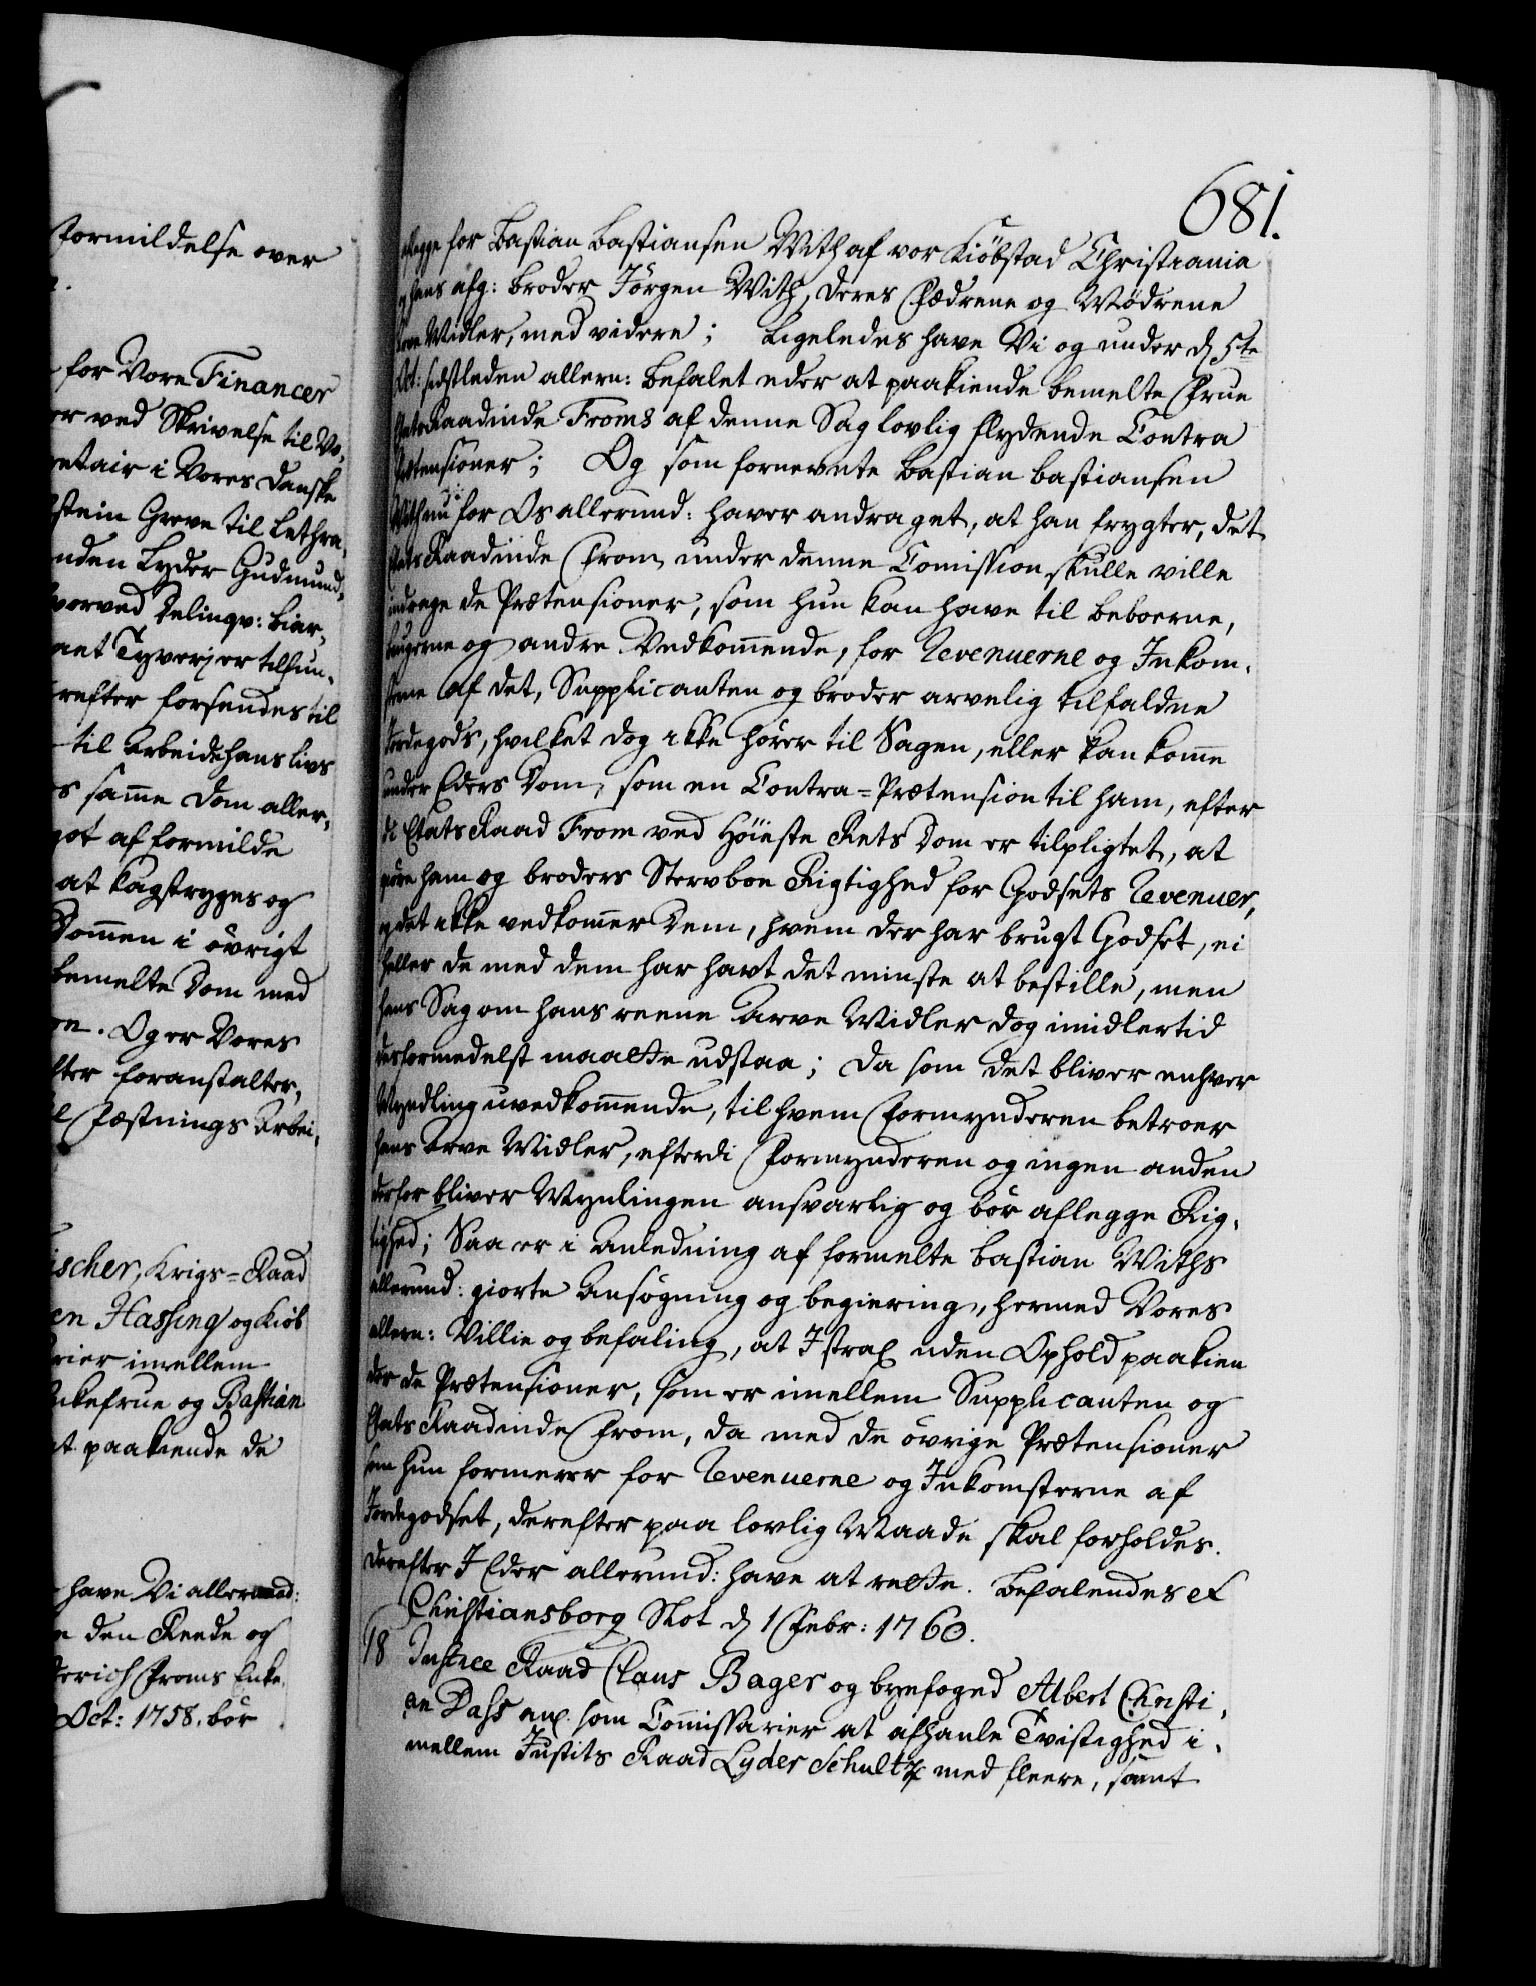 Formildelse over
for Vore Financer
er ved Skrivelse til Vo,
retair i Vores Danske
stein Greve til Lethra,
nden Lyder Gudmund,
vorved Delinqv: Biar,
aet Tyverj er tilfun,
refter forsendes til
til Arbeide hans Livs
s samme Dom aller,
got af formilde
at kagstryges og
Dommen i övrigt
bemelte Dom med
Og er Vores
fter foranstalter,
l Fæstnings Arbei,
ischer, Krigs-Raad
en Hassing og Kiöb
rier imellem
Enkefrue og Bastian
at paakiende de
have Vi allernaad:
den Reede og
derich Froms Enke,
Oct: 1758. bör
681.
flegge for Bastian Bastiansen With af vor Kiöbstad Christiania
og hans afg: Broder Jörgen With, deres Fædrene og Mödrene
Arve Midler, med videre; Ligeledes have Vi og under d 5te
Oct: sidstleden allern: befalet eder at paakiende bemelte Frue
Etats Raadinde Froms af denne Sag lovlig flydende Contra
Prætensioner; Og som fornevnte Bastian Bastiansen
With nu for Os allerund: haver andraget, at han frygter, det
Etats Raadinde From, under denne Comission skulle ville
inddrage de Prætensioner, som hun kan have til Beboerne,
Brugerne og andre Vedkommende, for Revenuerne og Inkom,
sterne af det, Supplicanten og Broder arvelig tilfaldne
Jordegods, hvilket dog ikke hörer til Sagen, eller kan komme
under Eders Dom, som en Contra-Prætension til ham, efter
di Etats Raad From ved Höieste Rets Dom er tilpligtet, at
giöre ham og Broders Stervboe Rigtighed for Godsets Revenuer,
og det ikke vedkommer Dem, hvem der har brugt Godset, ei
heller de med dem har havt det minste at bestille, men
hans Sag om hans reene Arve Midler dog imidlertid
derformedelst maatte udstaa; Da som det bliver enhver
Myndling uvedkommende, til hvem Formynderen betroer
hans Arve Midler, efterdi Formynderen og ingen anden
derfor bliver Mynlingen ansvarlig og bör aflegge Rig,
tighed; Saa er i Anledning af formelte Bastian Withs
allerund: giorte Ansögning og Begiering, hermed Vores
allern: Villie og Befaling, at I strax uden Ophold paakien
der de Prætensioner, som er imellem Supplicanten og
Etats Raadinde From, da med de övrige Prætensioner
som hun formerer for Revenuerne og Inkomsterne af
Jordegodset, derefter paa lovlig Maade skal forholdes.
Derefter I Eder allerund: have at rette. Befalendes etc
Christiansborg Slot d 1 Febr: 1760.
18 Justice Raad Claus Bager og Byefoged Albert Christi,
an Dass anl. som Commissarier at afhandle Tvistighed i,
mellem Justits Raad Lyder Schultz med fleere, samt